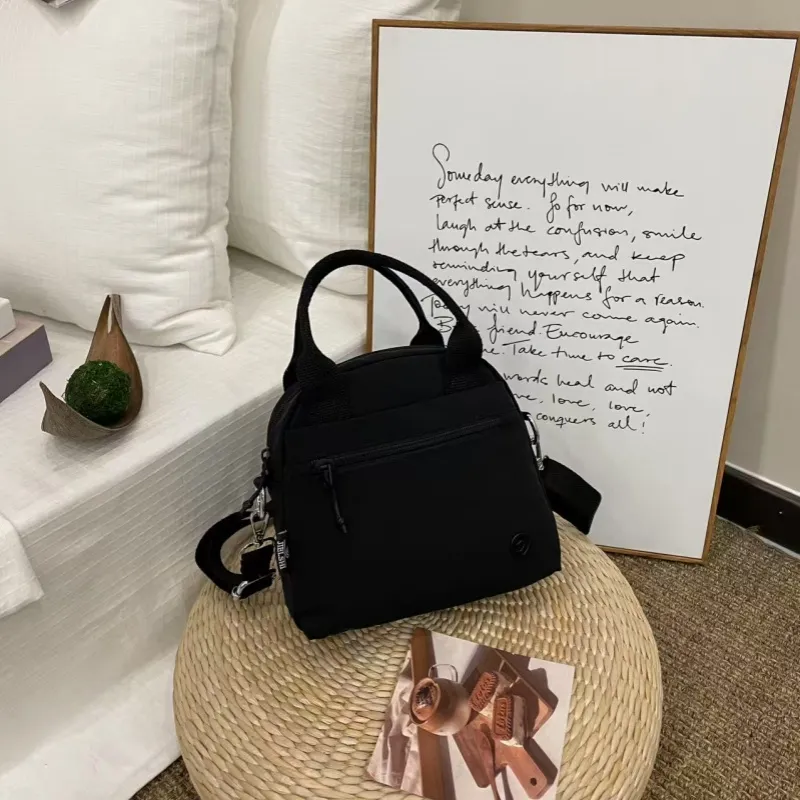 Someday everything will make
perfect sense. So for now,
laugh at the confusion, smile
through the tears, and keep
reminding yourself that
everything happens for a reason.
Today will never come again.
B friend. Encourage
me. Take time to care.
words heal and not
ve, love, love,
conquers all!